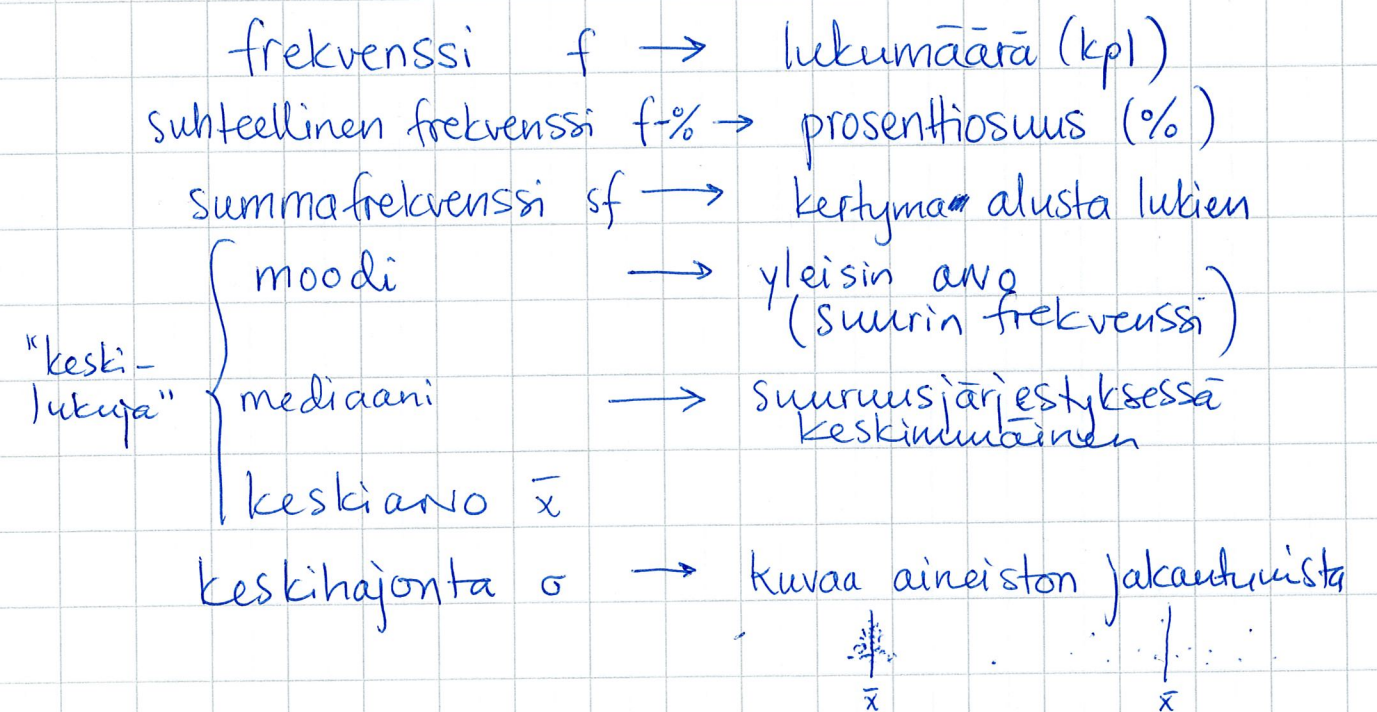 frekvenssi f → lukumäärä (kpl)
suhteellinen frekvenssi f-% → prosenttiosuus (%)
summafrekvenssi sf → kertymä alusta lukien
moodi → yleisin arvo
(suurin frekvenssi)
"keski-
lukuja"
mediaani → suuruusjärjestyksessä
keskimmäinen
keskiarvo x̄
keskihajonta σ → kuvaa aineiston jakautumista
x̄ x̄